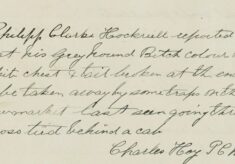 Philipp Clarke Hockrell reported
at his Greyhound Bitch colour
it chest & tail broken at the en
be taken away by some traps on th
ewmarket last seen going thr
oss tied behind a cab
Charles Hoy P.C.